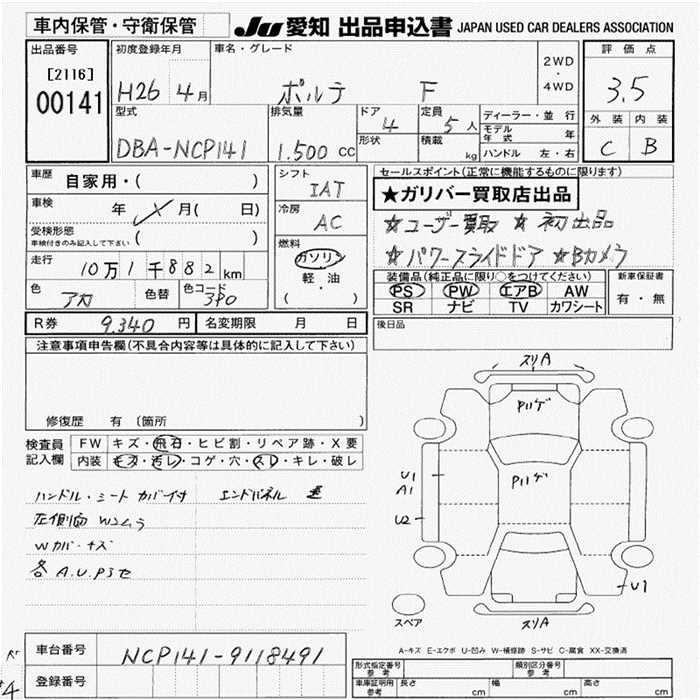 車内保管・守衛保管
JU 愛知 出品申込書 JAPAN USED CAR DEALERS ASSOCIATION
出品番号
[2116]
00141
初度登録年月
H26 4月
車名・グレード
ポルテ F
2WD
・
4WD
評価点
3.5
外装 内装
C B
型式
DBA-NCP141
排気量
1.500 cc
ドア
4
形状
定員
5人
積載
kg
ディーラー・並行
モデル年式 年
ハンドル 左・右
車歴 自家用・( )
車検 年 月( 日)
受検形態
車検付きのみ記入して下さい ( )
走行 10万1千882km
色 アカ 色替 色コード 3P0
シフト
IAT
冷房
AC
燃料
ガソリン
軽・油
( )
セールスポイント(正常に機能するものに限ります)
★ガリバー買取店出品
☆ユーザー買取 ☆初出品
☆パワースライドドア ☆Bカメラ
装備品(純正品に限り○をつけてください)
PS PW エアB AW
SR ナビ TV カワシート
新車保証書
有・無
R券 9.340円 名変期限 月 日
後日品
注意事項申告欄(不具合内容等は具体的に記入して下さい)
修復歴 有〔箇所 〕
検査員記入欄
FW キズ・飛石・ヒビ割・リペア跡・X要
内装 キズ・汚レ・コゲ・穴・スレ・キレ・破レ
ハンドル・シート カバー付 エンドパネル
左側面 Wムラ
Wカバーキズ
各A.U.Pヨセ
スリA
Pハゲ
Pハゲ
U1
A1
U2
U1
スペア
スリA
A-キズ E-エクボ U-凹み W-補修跡 S-サビ C-腐食 XX-交換済
車台番号 NCP141-9118491
登録番号
形式指定番号 参考
類別区分番号 参考
車庫証明用 参考 長さ cm 幅 cm 高さ cm